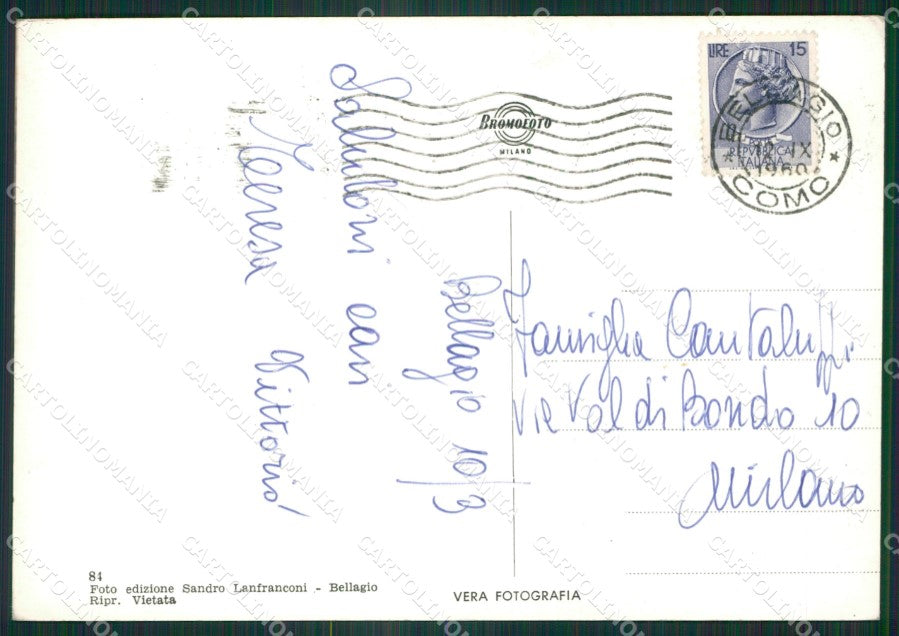 LIRE 15
REPVBBLICA
ITALIANA
BELLAGIO
IX
1960
COMO
BROMOFOTO
MILANO
Saluti cari
Teresa Vittorio
Bellagio 10/9
Famiglia Cantaluppi
Via Val di Bondo 10
Milano
84
Foto edizione Sandro Lanfranconi - Bellagio
Ripr. Vietata
VERA FOTOGRAFIA
CARTOLINOMANIA